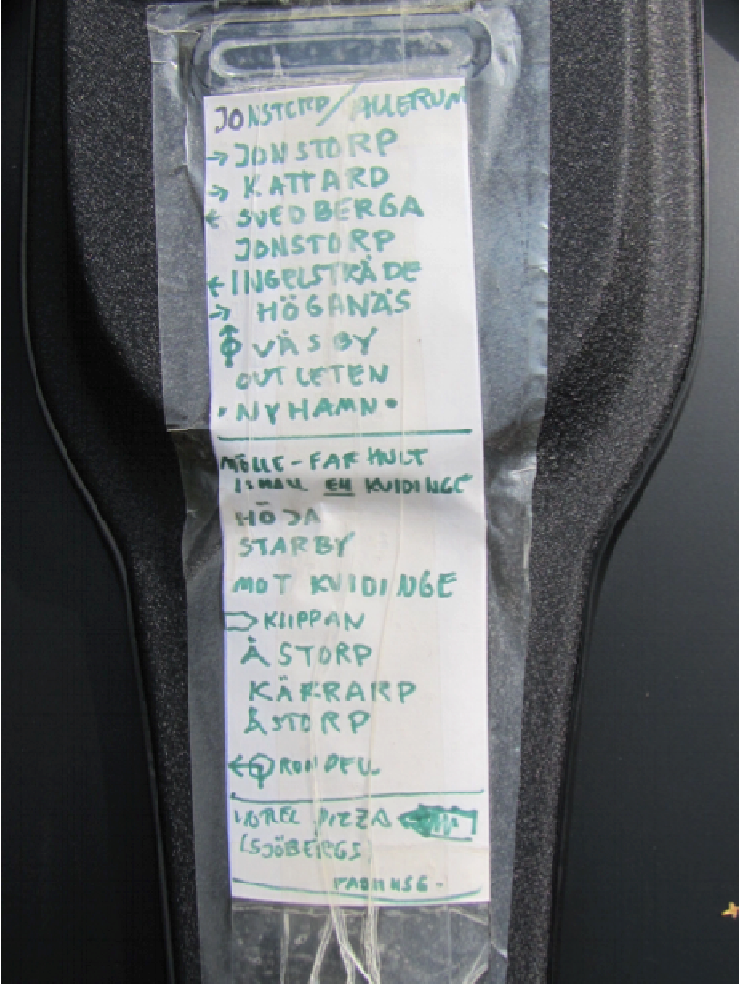 JONSTORP/ALLERUM
→ JONSTORP
→ KATTARD
← SVEDBERGA
JONSTORP
← INGELSTRÄDE
→ HÖGANÄS
VÄSBY
OUTLETEN
• NYHAMN •
MÖLLE-FARHULT
KVIDINGE
HÖJA
STARBY
MOT KVIDINGE
KLIPPAN
ÅSTORP
KÄRRARP
ÅSTORP
← RONDELL
PIZZA
(SJÖBERGS